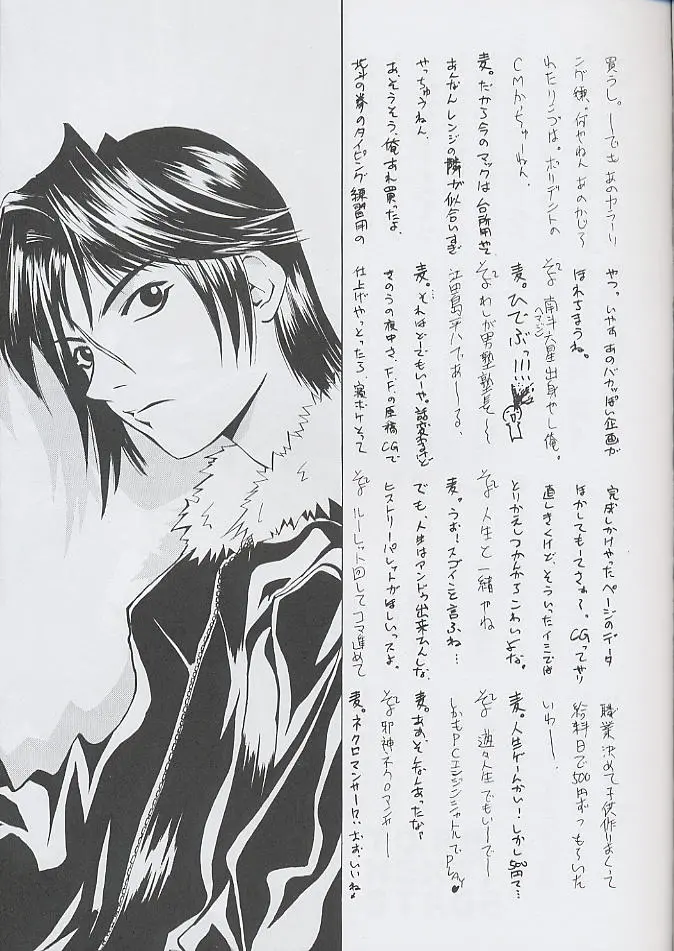 買うし。ーでも あのヤラーリ
ング 頼、何やねん あのかじら
れたリンゴは。ポリデントの
CMかっちゅーねん。
麦。だから今のマックは 台所用や、
あんなん レンジの隣が似合いすぎ
やっちゅうねん、
あ、そうそう、俺 あれ買ったよ、
北斗の拳のタイピング練習用の
やつ。いやぁ あのバカっぽい企画が
ほれちまうね。
そよ 南斗六星出身やし俺。
麦。ひでぶっ!!!
そよ わしが男塾塾長〜
江田島平八であーーる、
麦。それはどーでもいーや。話変わるけど
きのうの夜中さ、F.F.の原稿CGで
仕上げやっとったら、寝ボケとって
完成しかけやったページのデータ
ほかしてもーてさぁ〜。CGってやり
直しきくけど、そういったイミでは
とりかえしつかんからこわいよな。
そよ 人生と一緒やね
麦。うお!スゴイこと言ふね…
でも、人生はアンドゥ出来んしな、
ヒストリーパレットがほしいっスよ。
そよ ルーレット回して コマ進めて
職業 決めて 子供作りまくって
給料日で500円ずつもらいた
いわー、
麦。人生ゲームかい!しかし500円て…
そよ 遊々人生でもいーでー
しかもPCエンジンシャトルでPlay♥
麦。ああそんなんあったな、
そよ 邪神ネクロマンサー
麦。ネクロマンサー!?、おお、いいね。